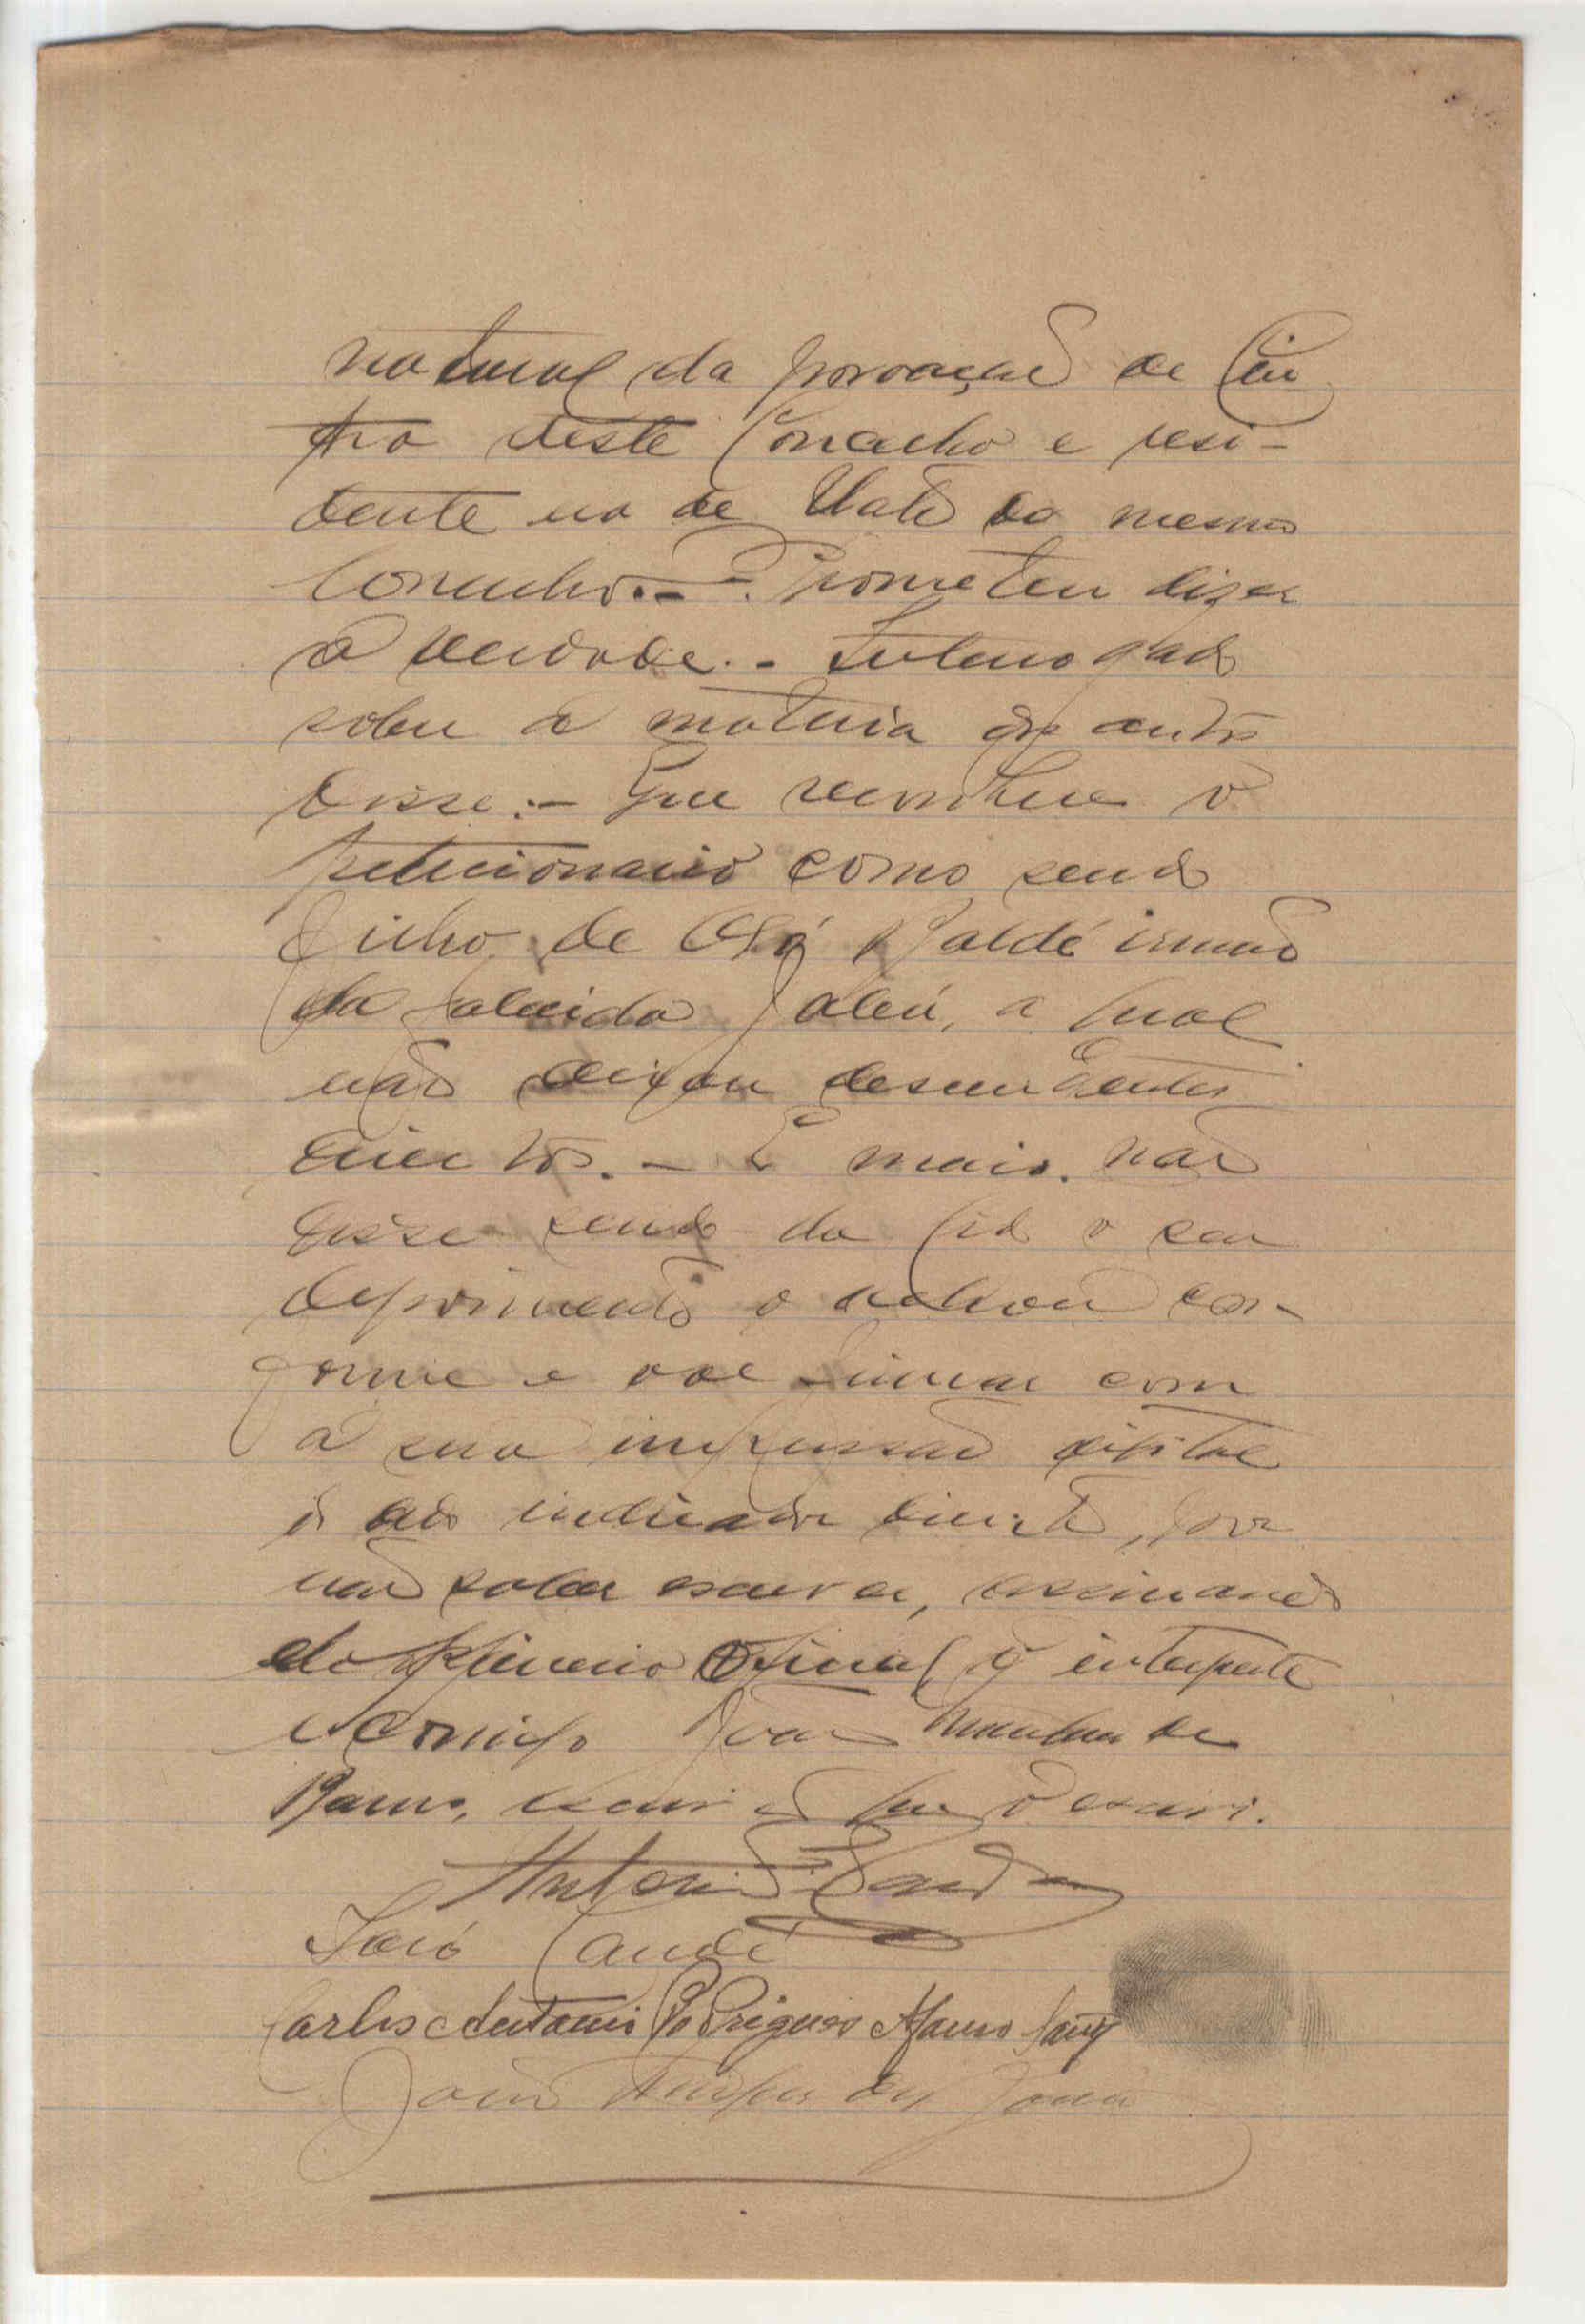 natural da povoação de Cin
tra deste Concelho e resi-
dente na de Uató do mesmo
Concelho. - Prometeu dizer
a verdade. - Interrogado
sobre a materia dos autos
disse: - Que reconhece o
peticionario como sendo
filho de Baldé irmão
da falecida a qual
não deixou descendentes
directos. - E mais não
disse sendo da lido o seu
depoimento o achou con-
forme e vae firmar com
a sua impressão digital
do indicador direito, por
não saber escrever, assinando
do Oficial, o interprete
e comigo João de
Barros, escrivão que o escrevi.
Antonio
Candé
Carlos Rodrigues
João